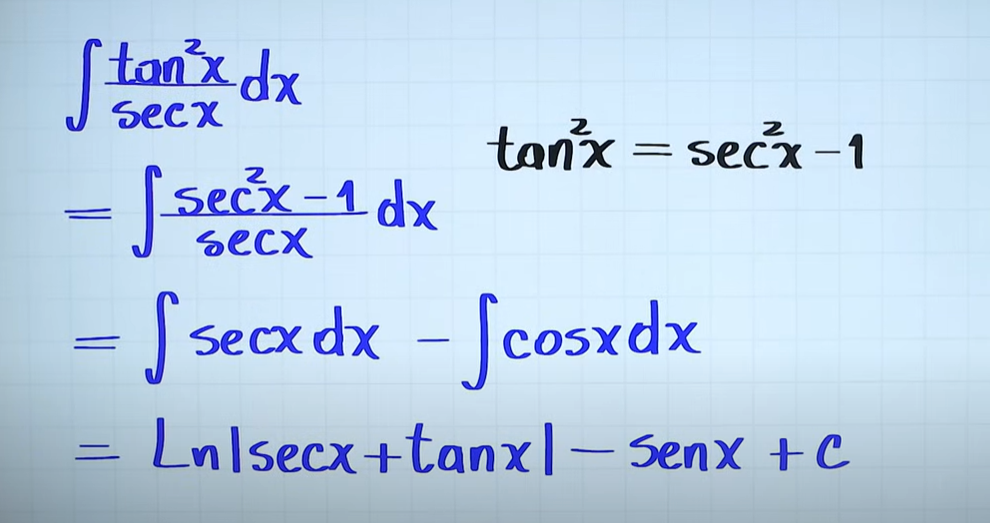 ∫ tan²x/secx dx
tan²x = sec²x - 1
= ∫ sec²x - 1/secx dx
= ∫ secx dx - ∫ cosx dx
= Ln|secx + tanx| - senx + c